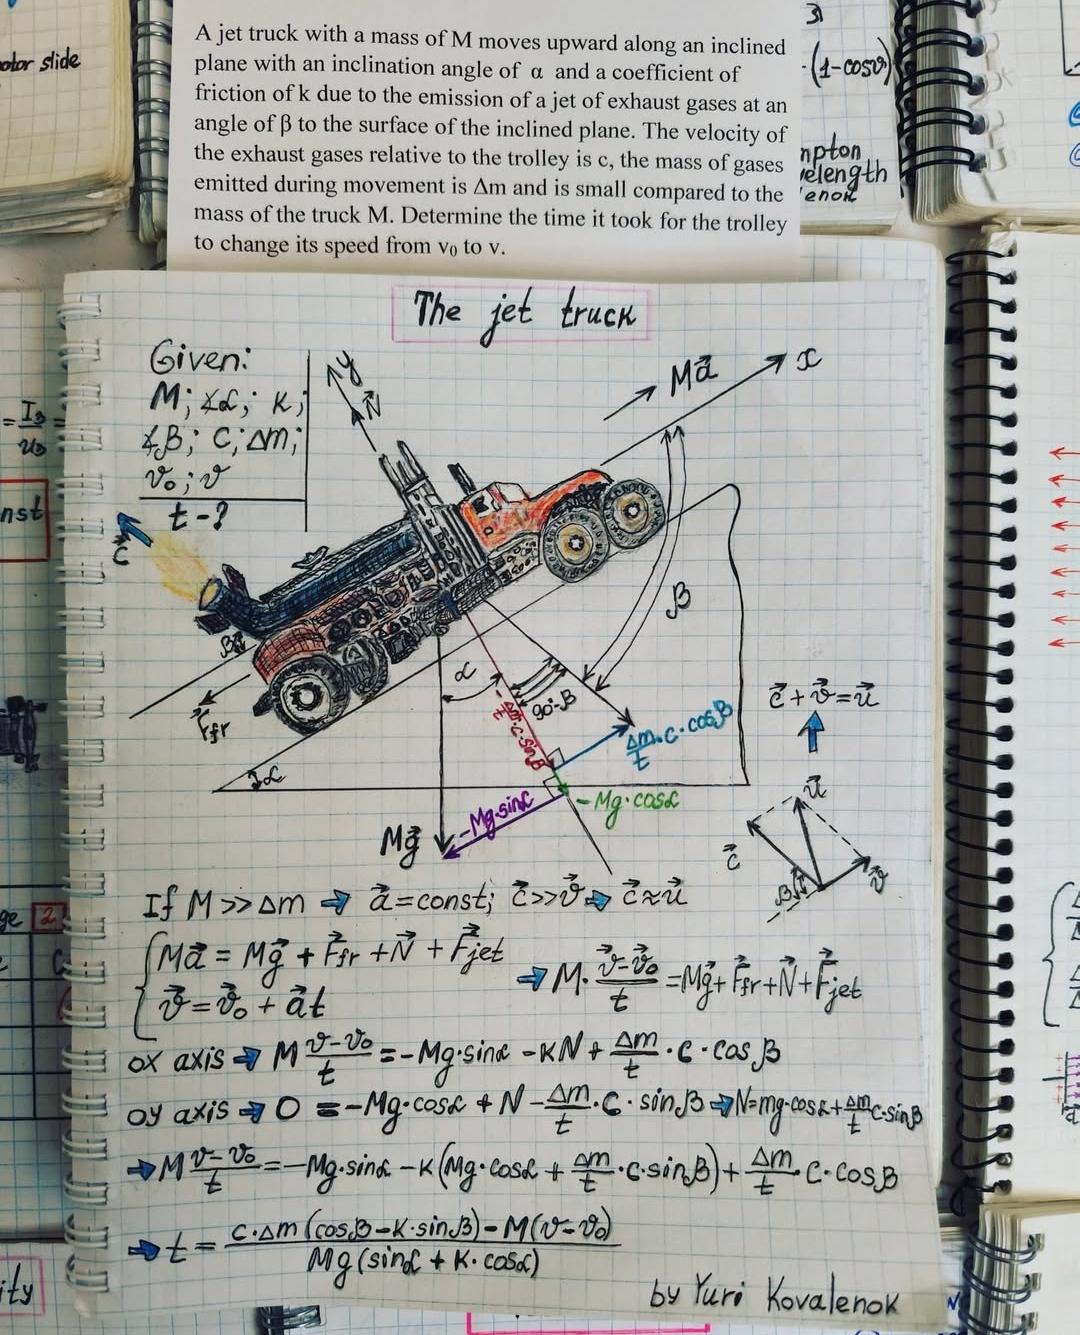 A jet truck with a mass of M moves upward along an inclined
plane with an inclination angle of α and a coefficient of
friction of k due to the emission of a jet of exhaust gases at an
angle of β to the surface of the inclined plane. The velocity of
the exhaust gases relative to the trolley is c, the mass of gases
emitted during movement is Δm and is small compared to the
mass of the truck M. Determine the time it took for the trolley
to change its speed from v₀ to v.
otor slide
·(1-cosϑ)
mpton
elength
enok
The jet truck
Given:
M; ∡α; K;
∡β; C; Δm;
v₀; v
t-?
y⃗
N⃗
Ma⃗
x
c⃗
β
F⃗fr
α
α
90°-β
β
-Δm/t·c·sinβ
Δm/t·c·cosβ
-Mg·sinα
-Mg·cosα
Mg⃗
c⃗+v⃗=u⃗
u⃗
c⃗
β
v⃗
If M>>Δm ⇒ a⃗=const; c⃗>>v⃗ ⇒ c⃗≈u⃗
{Ma⃗ = Mg⃗ + F⃗fr + N⃗ + F⃗jet
v⃗=v⃗₀ + a⃗t
⇒ M·(v⃗-v⃗₀)/t = Mg⃗+F⃗fr+N⃗+F⃗jet
ox axis ⇒ M (v-v₀)/t = -Mg·sinα -KN + Δm/t·C·cosβ
oy axis ⇒ 0 = -Mg·cosα + N - Δm/t·C·sinβ ⇒ N=mg·cosα+Δm/t C·sinβ
⇒ M (v-v₀)/t = -Mg·sinα -K(Mg·cosα + Δm/t·C·sinβ) + Δm/t·C·cosβ
⇒ t = (C·Δm(cosβ-K·sinβ)-M(v-v₀))/(Mg(sinα + K·cosα))
by Yuri Kovalenok
nst
ge 2
ity